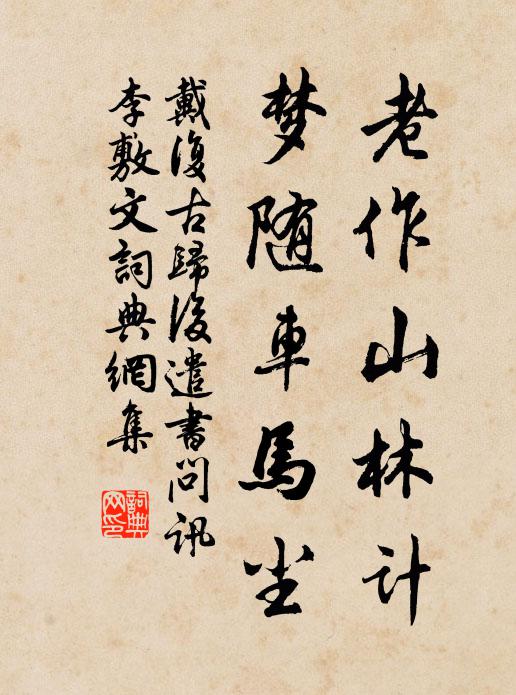 老作山林计
梦随车马尘
戴復古歸後遣書問訊
李敷文詞典網集
詞典网印